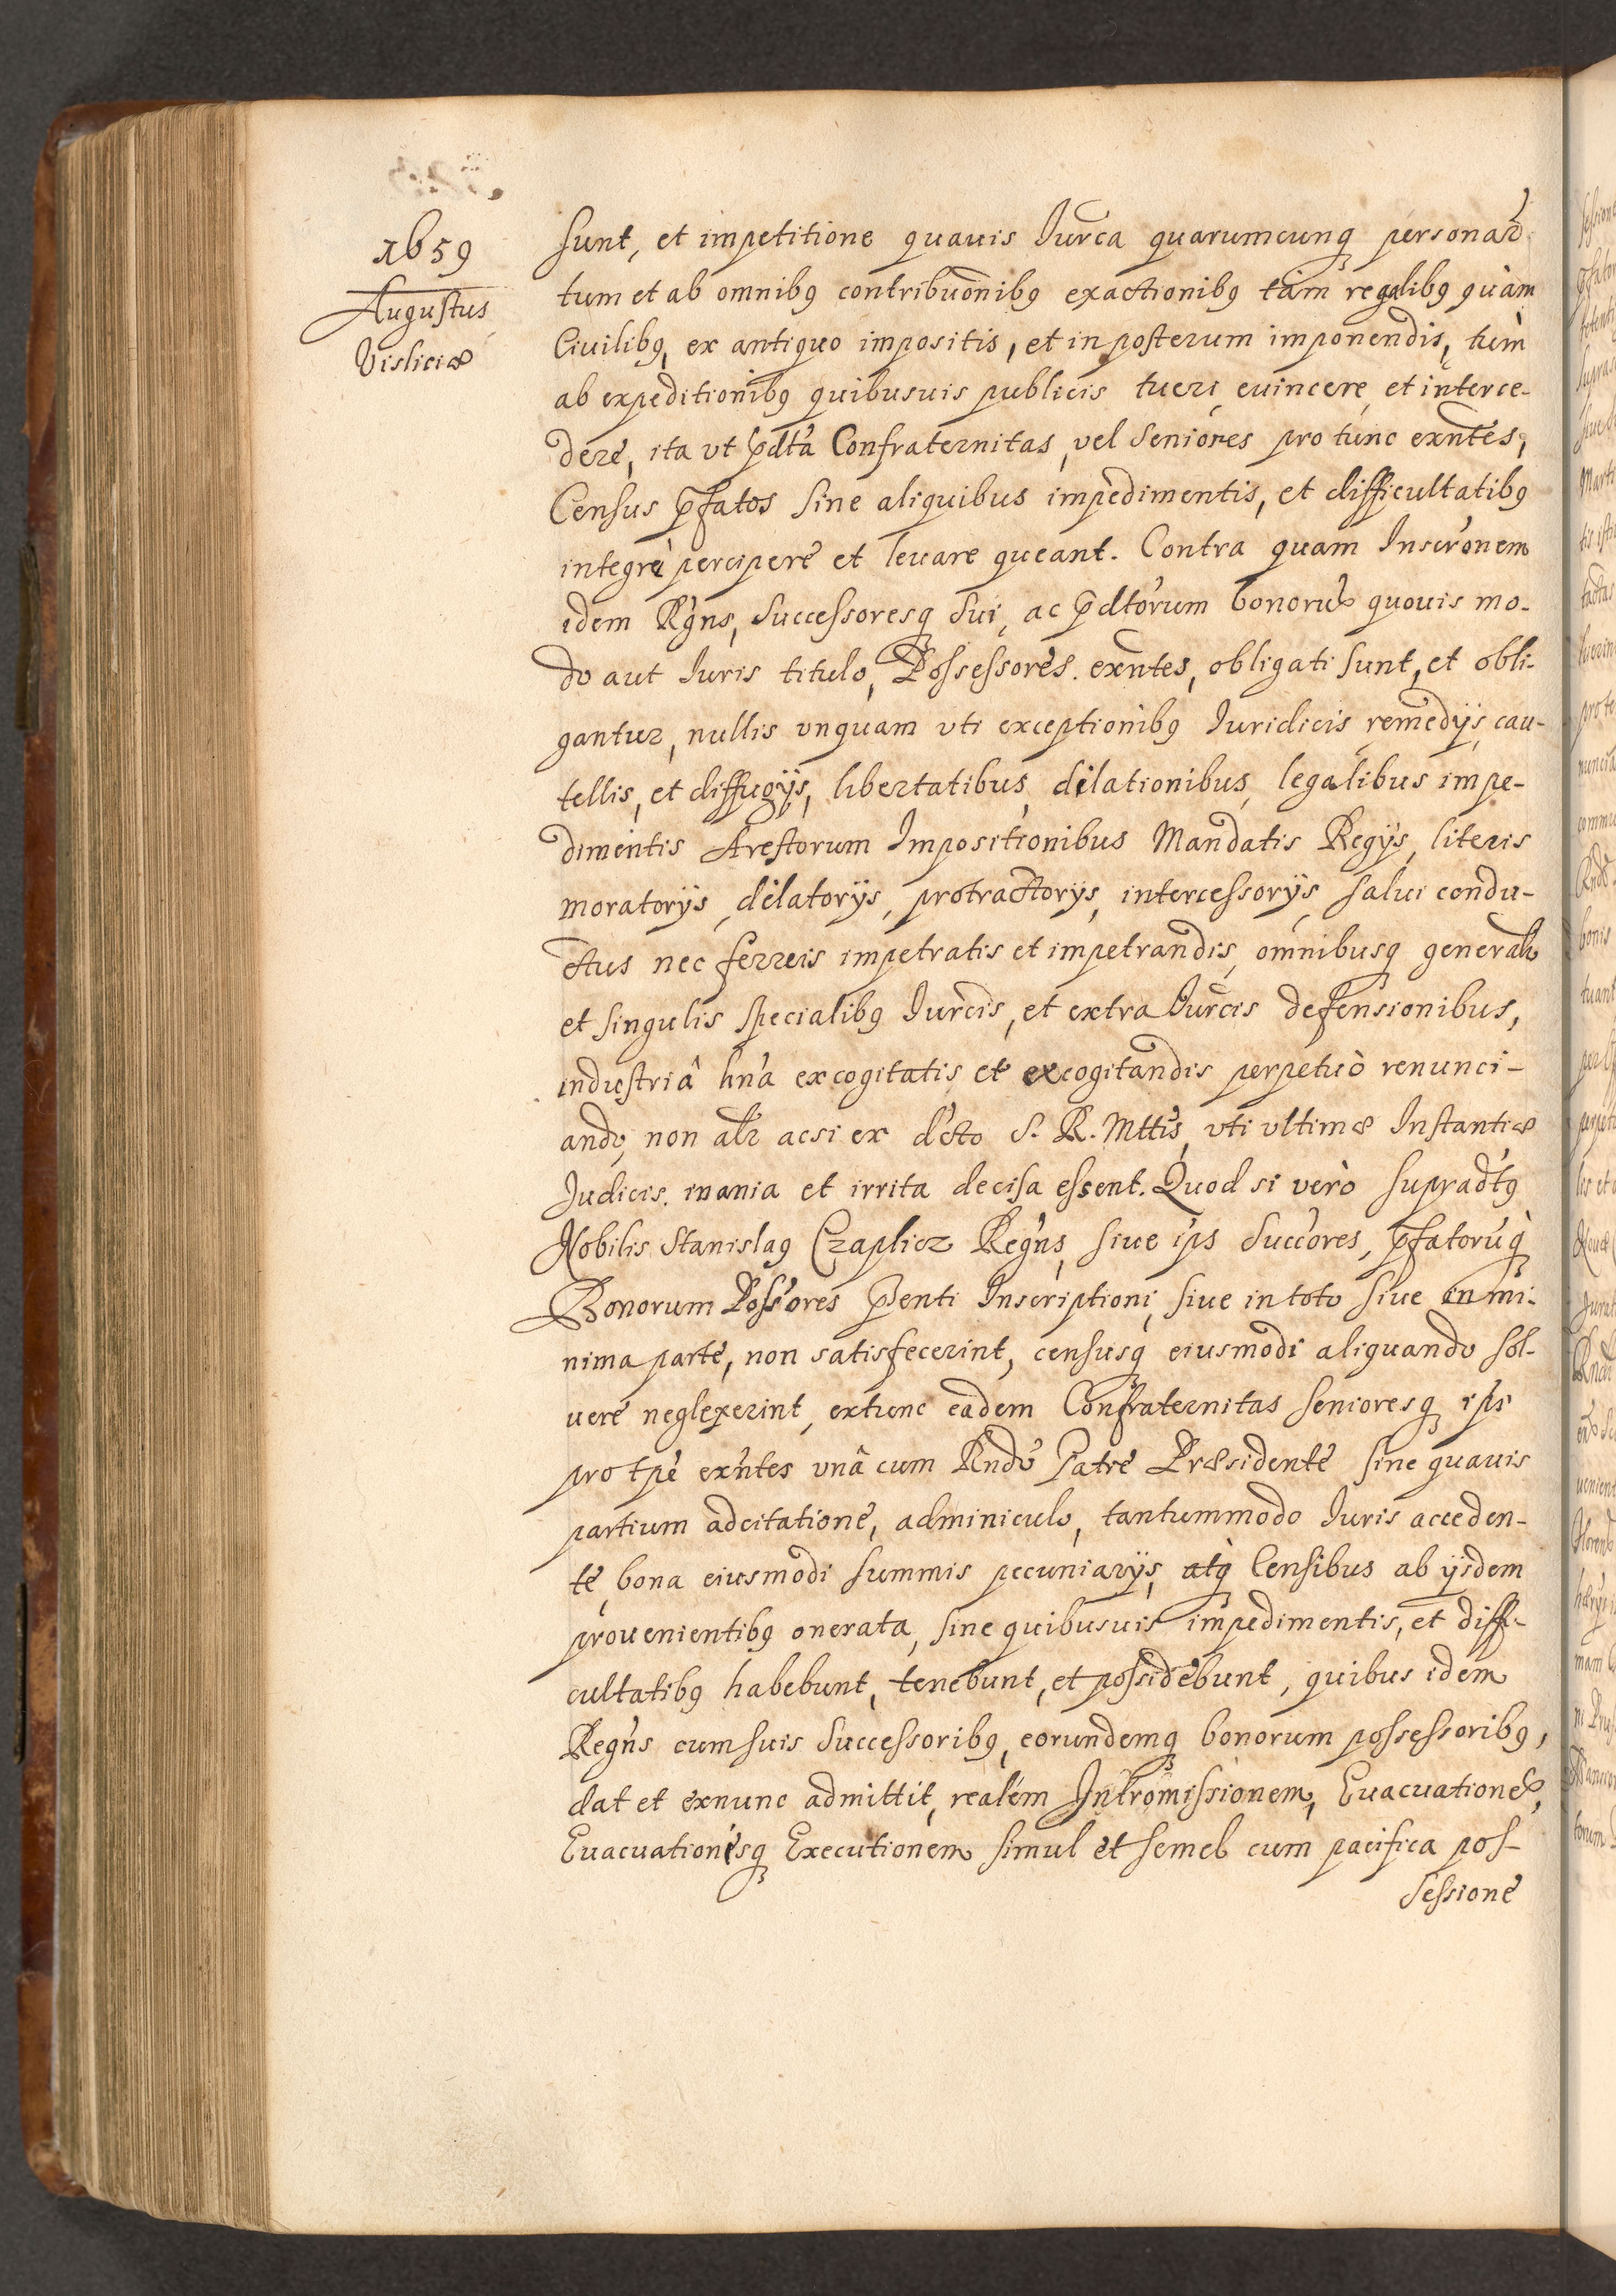 1659
Augustus
Visliciæ
sunt, et impetitione quauis Iurca quarumcunq personar
tum et ab omnibq contribuonibq exactionibq tàm regalibq quàm
Ciuilibq, ex antiquo impositis, et in posterum imponendis, tùm
ab expeditionibq quibusuis publicis tueri, euincere, et interce-
dere, ita vt pdta Confraternitas, vel Seniores pro tunc exntes,
Census pfatos sine aliquibus impedimentis, et difficultatibq
integrè percipere et leuare queant. Contra quam Inscronem
idem Rgns, Successoresq Sui, ac pdtorum bonorum quouis mo-
do aut Iuris titulo, Possessores exntes, obligati sunt, et obli-
gantur, nullis vnquam vti exceptionibq Iuridicis, remedijs, cau-
tellis, et diffugijs, libertatibus, dilationibus, legalibus impe-
dimentis Arestorum Impositionibus Mandatis Regijs, literis
moratorijs, dilatorijs, protractorijs, intercessorijs, salui condu-
ctus nec ferreis impetratis et impetrandis, omnibusq generalr
et singulis specialibq Iurcis, et extra Iurcis defensionibus,
industriâ hna excogitatis et excogitandis perpetuò renunci-
ando, non alr acsi ex dcto S. R. Mttis, vti vltimæ Instantiæ
Judicis. inania et irrita decisa essent. Quod si verò supradtq
Nobilis Stanislaq Czaplicz Regns, siue ips Succores, pfatoruq
Bonorum Possores psenti Inscriptioni, siue in toto siue in mi-
nima parte, non satisfecerint, censusq eiusmodi aliquando sol-
uere neglexerint, extunc eadem Confraternitas Senioresq ipsi
pro tpe exntes vnâ cum Rndo Patre Præsidente sine quauis
partium adcitatione, adminiculo, tantummodo Iuris acceden-
te, bona eiusmodi summis pecuniarijs, atq Censibus ab ijsdem
prouenientibq onerata, sine quibusuis impedimentis, et diffi-
cultatibq habebunt, tenebunt, et possidebunt, quibus idem
Regns cum suis Successoribq, eorundemq bonorum possessoribq,
dat et exnunc admittit, realem Intromissionem, Euacuationem,
Euacuationisq Executionem simul et semel cum pacifica pos-
sessione